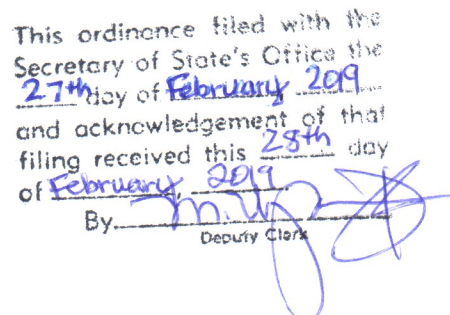 This ordinance filed with the
Secretary of State's Office the
27th day of February, 2019
and acknowledgement of that
filing received this 28th day
of February, 2019.
By
Deputy Clerk